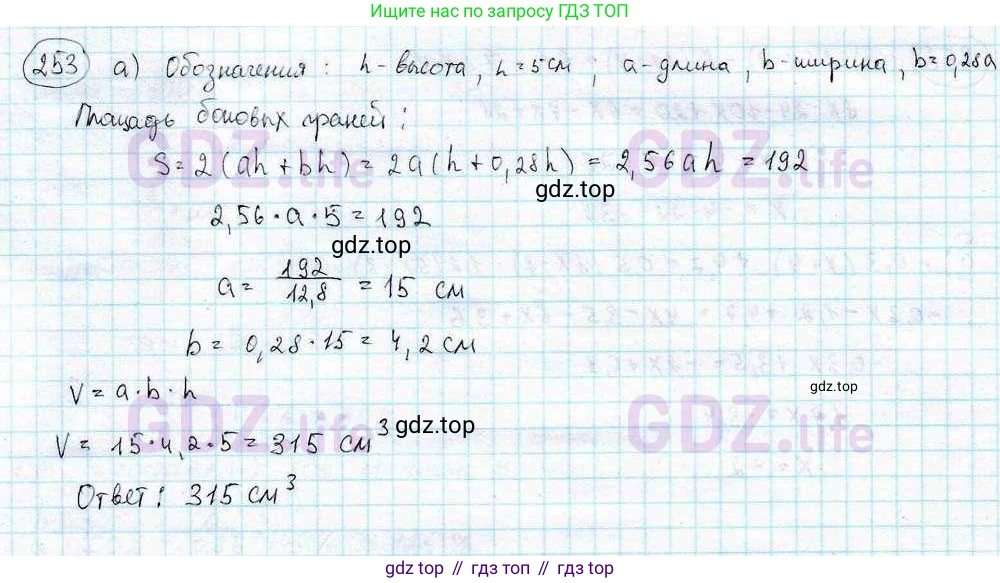 Ищите нас по запросу ГДЗ ТОП
253 а) Обозначения : h - высота, h = 5 см ; a - длина, b - ширина, b = 0,28a
Площадь боковых граней :
S = 2 (ah + bh) = 2a (h + 0,28h) = 2,56 ah = 192
gdz.top
2,56 · a · 5 = 192
gdz.top
a = 192/12,8 = 15 см
b = 0,28 · 15 = 4,2 см
V = a · b · h
gdz.top
V = 15 · 4,2 · 5 = 315 см³
gdz.top
Ответ : 315 см³
GDZ.life
GDZ.life
GDZ.life
GDZ.life
gdz.top // гдз топ // гдз.топ